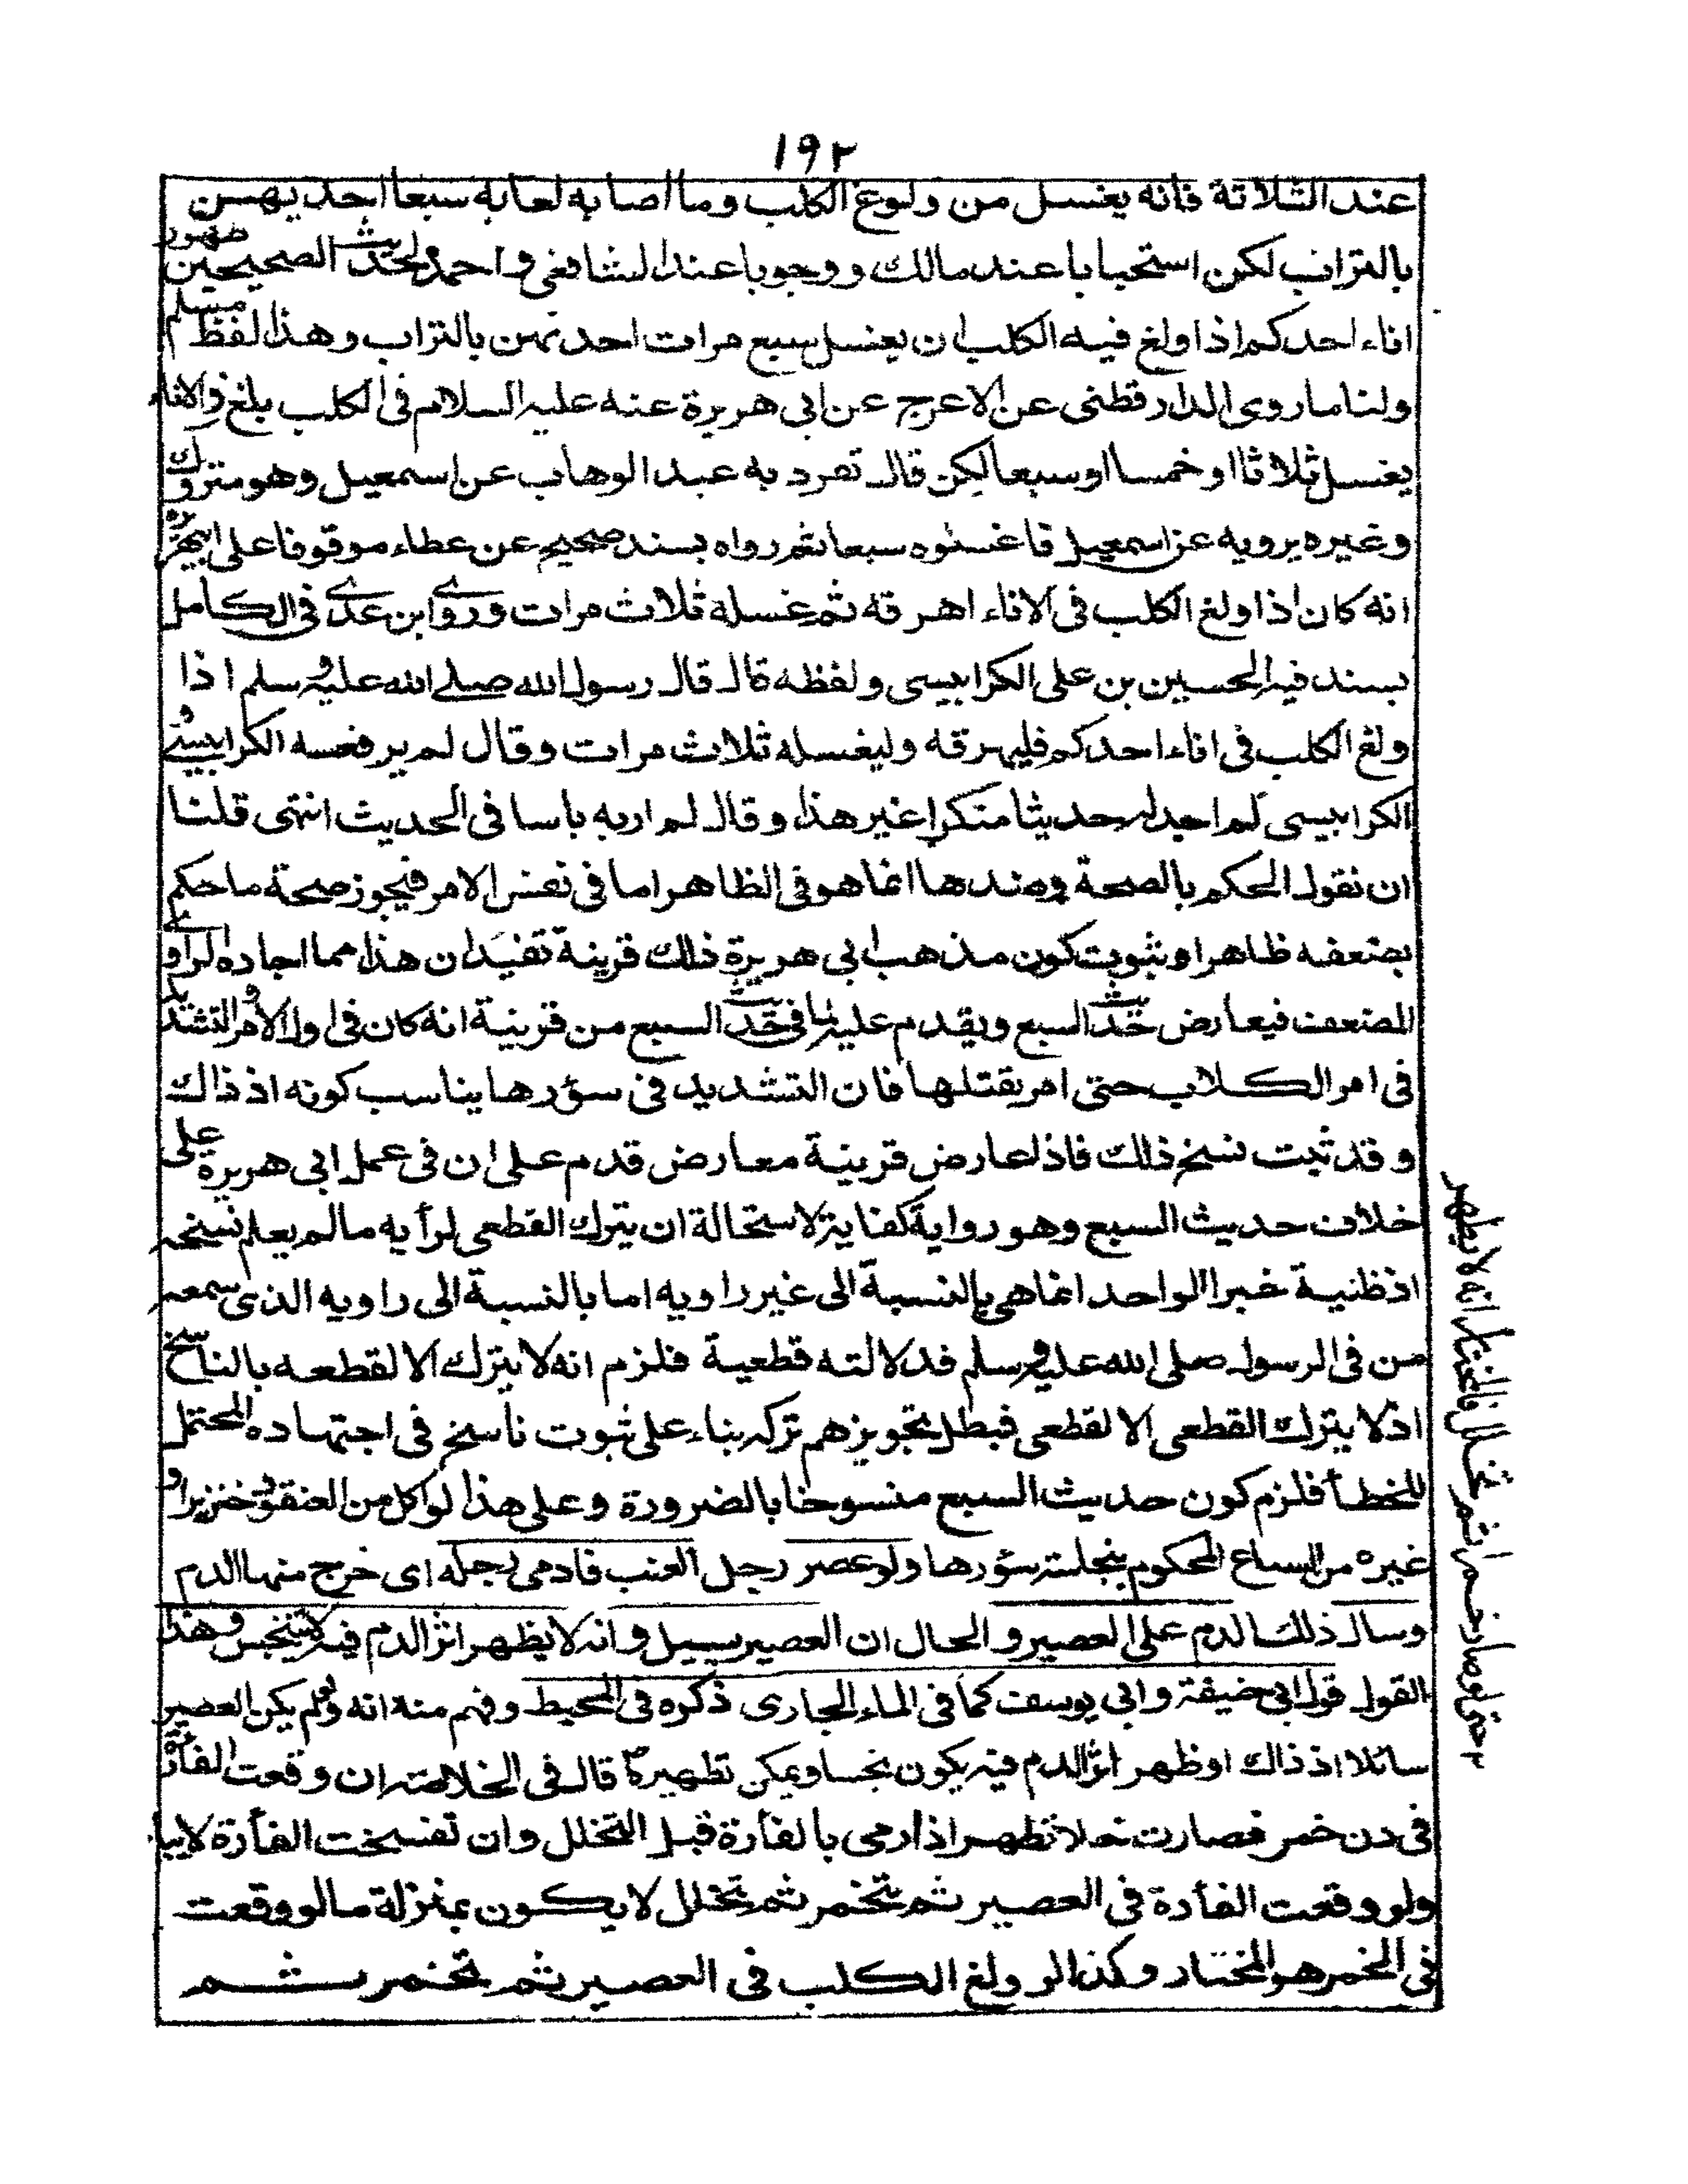 ١٩٢
عند الثلاثة فانه يغسل من ولوغ الكلب وما اصابه لعابه سبعا احديهن
بالتراب لكن استحبابا عند مالك ووجوبا عند الشافعي و احمد لحديث الصحيحين طهور
اناء احدكم اذا ولغ فيه الكلب ان يغسل سبع مرات احدىهن بالتراب وهذا لفظ مسلم
ولنا ما روى الدارقطنى عن الاعرج عن ابى هريرة عنه عليه السلام فى الكلب يلغ فى الاناء
يغسل ثلاثا او خمسا او سبعا لكن قال تفرد به عبد الوهاب عن اسمعيل وهو متروك
وغيره يرويه عن اسمعيل فاغسلوه سبعا ثم رواه بسند صحيح عن عطاء موقوفا على ابى هريرة
انه كان اذا ولغ الكلب فى الاناء اهرقه ثم غسله ثلاث مرات وروى ابن عدى فى الكامل
بسند فيه الحسين بن على الكرابيسى ولفظه قال قال رسول الله صلى الله عليه وسلم اذا
ولغ الكلب فى اناء احدكم فليهرقه وليغسله ثلاث مرات وقال لم يرفعه الكرابيسى و
الكرابيسى لم اجد له حديثا منكرا غير هذا وقال لم ار به باسا فى الحديث انتهى قلنا
ان نقول الحكم بالصحة وضدها انما هو فى الظاهر اما فى نفس الامر فيجوز صحة ما حكم
بضعفه ظاهرا وثبوت كون مذهب ابى هريرة ذلك قرينة تفيد ان هذا مما اجاده الراوى
المضعف فيعارض حديث السبع ويقدم عليه لما فى حديث السبع من قرينة انه كان فى اول الامر والتشديد
فى امر الكلاب حتى امر بقتلها فان التشديد فى سؤرها يناسب كونه اذ ذاك
وقد ثبت نسخ ذلك فاذا عارض قرينة معارض قدم على ان فى عمل ابى هريرة على
خلاف حديث السبع وهو رواية كفاية لاستحالة ان يترك القطعى لرأيه ما لم يعلم نسخه
اذ ظنية خبر الواحد انما هى بالنسبة الى غير راويه اما بالنسبة الى راويه الذى سمعه
من فى الرسول صلى الله عليه وسلم فدلالته قطعية فلزم انه لا يترك الا لقطعه بالناسخ
اذ لا يترك القطعى الا لقطعى فبطل تجويزهم تركه بناء على ثبوت ناسخ فى اجتهاده المحتمل
للخطأ فلزم كون حديث السبع منسوخا بالضرورة وعلى هذا لو اكل من العنقود خنزير او
غيره من السباع المحكوم بنجاسة سؤرها ولو عصر رجل العنب فادمى رجله اى خرج منها الدم
وسال ذلك الدم على العصير و الحال ان العصير يسيل وانه لا يظهر اثر الدم فيه لا يتنجس وهذا
القول قول ابى حنيفة وابى يوسف كما فى الماء الجارى ذكره فى المحيط وفهم منه انه لو لم يكن العصير
سائلا اذ ذاك او ظهر اثر الدم فيه يكون نجسا ويمكن تطهيره كما قال فى الخلاصة ان وقعت الفأرة
فى دن خمر فصارت خلا تطهر اذا رمى بالفأرة قبل التخلل وان تفسخت الفأرة لا يباح
ولو وقعت الفأرة فى العصير ثم تخمر ثم تخلل لا يكون بمنزلة ما لو وقعت
فى الخمر هو المختار وكذا لو ولغ الكلب فى العصير ثم تخمر ثم
حتى لو صار خمرا ثم تخلل فالمختار انه لا يطهر